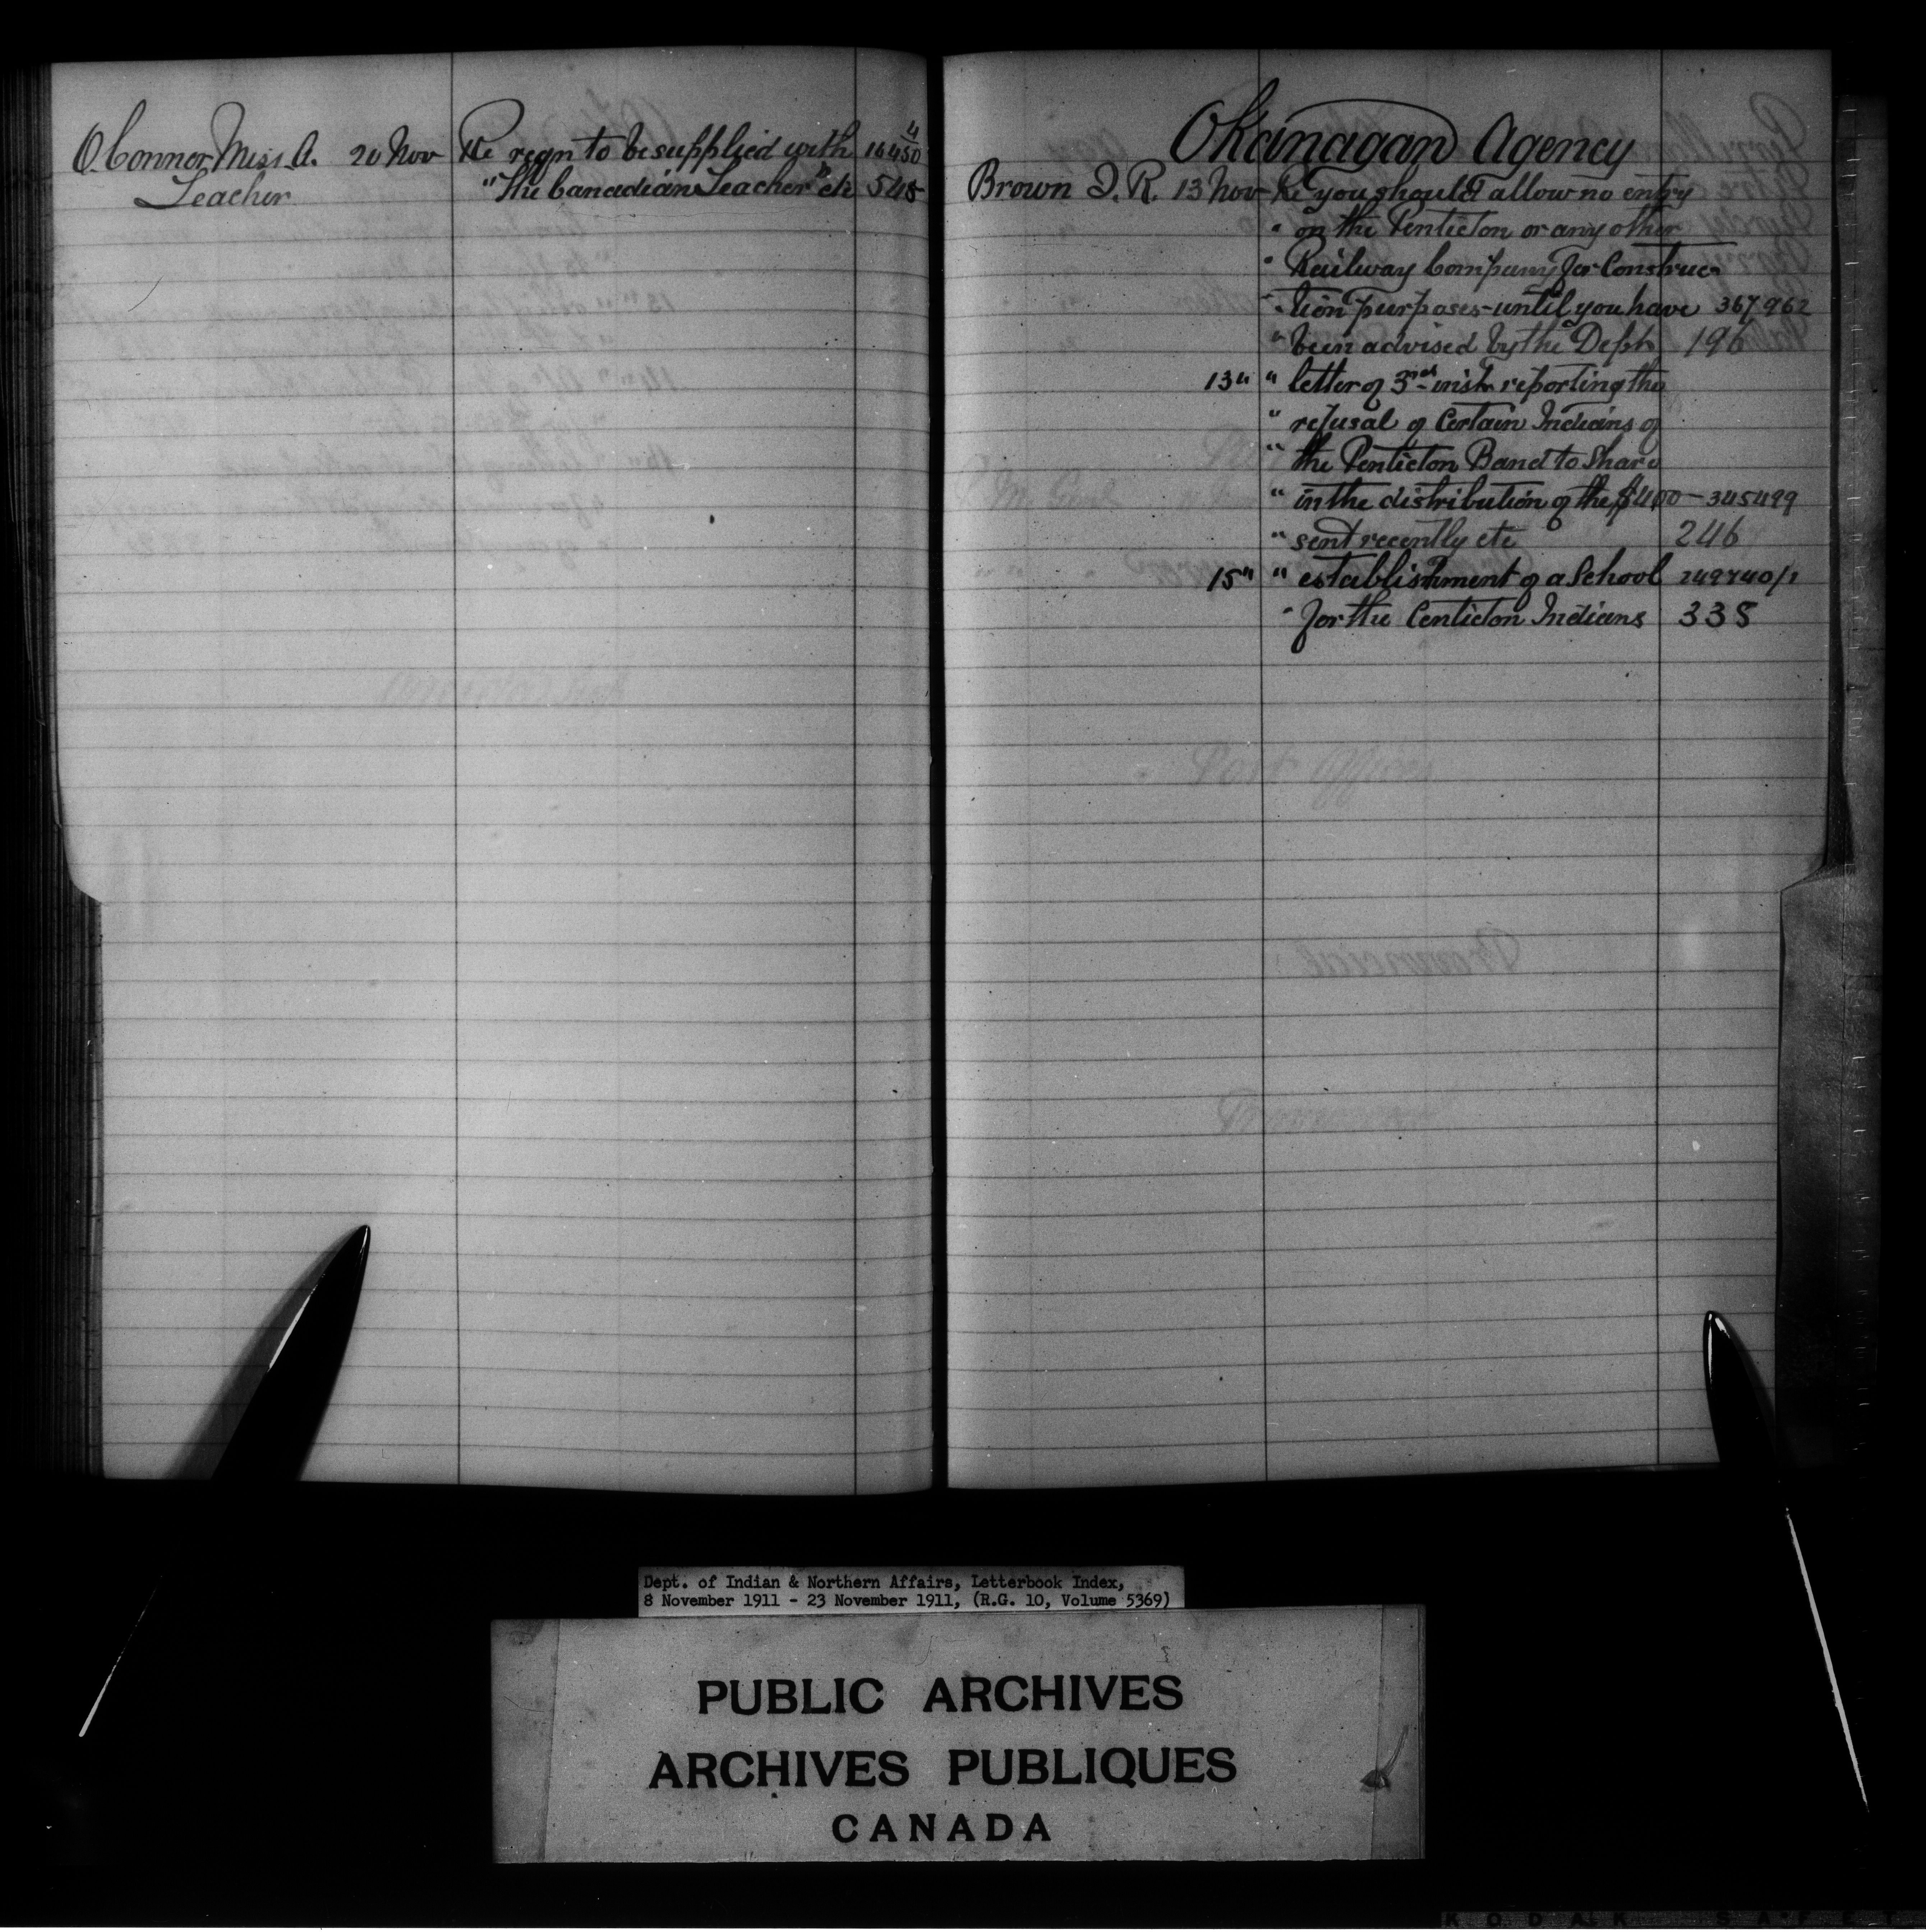 O'Connor Miss A. 20 Nov Re reqn to be supplied with
Teacher "The Canadian Teacher" etc 545
Okanagan Agency
Brown J. R. 13 Nov Re you should allow no entry
" on the Penticton or any other
" Railway Company for Construc-
" tion purposes - until you have 367962
" been advised by the Dept 196
13 " " letter of 3rd inst. reporting the
" refusal of Certain Indians of
" the Penticton Band to Share
" in the distribution of the $400 - 345499
" sent recently etc 246
15 " " establishment of a School 249740/1
" for the Penticton Indians 338
Dept. of Indian & Northern Affairs, Letterbook Index,
8 November 1911 - 23 November 1911, (R.G. 10, Volume 5369)
PUBLIC ARCHIVES
ARCHIVES PUBLIQUES
CANADA